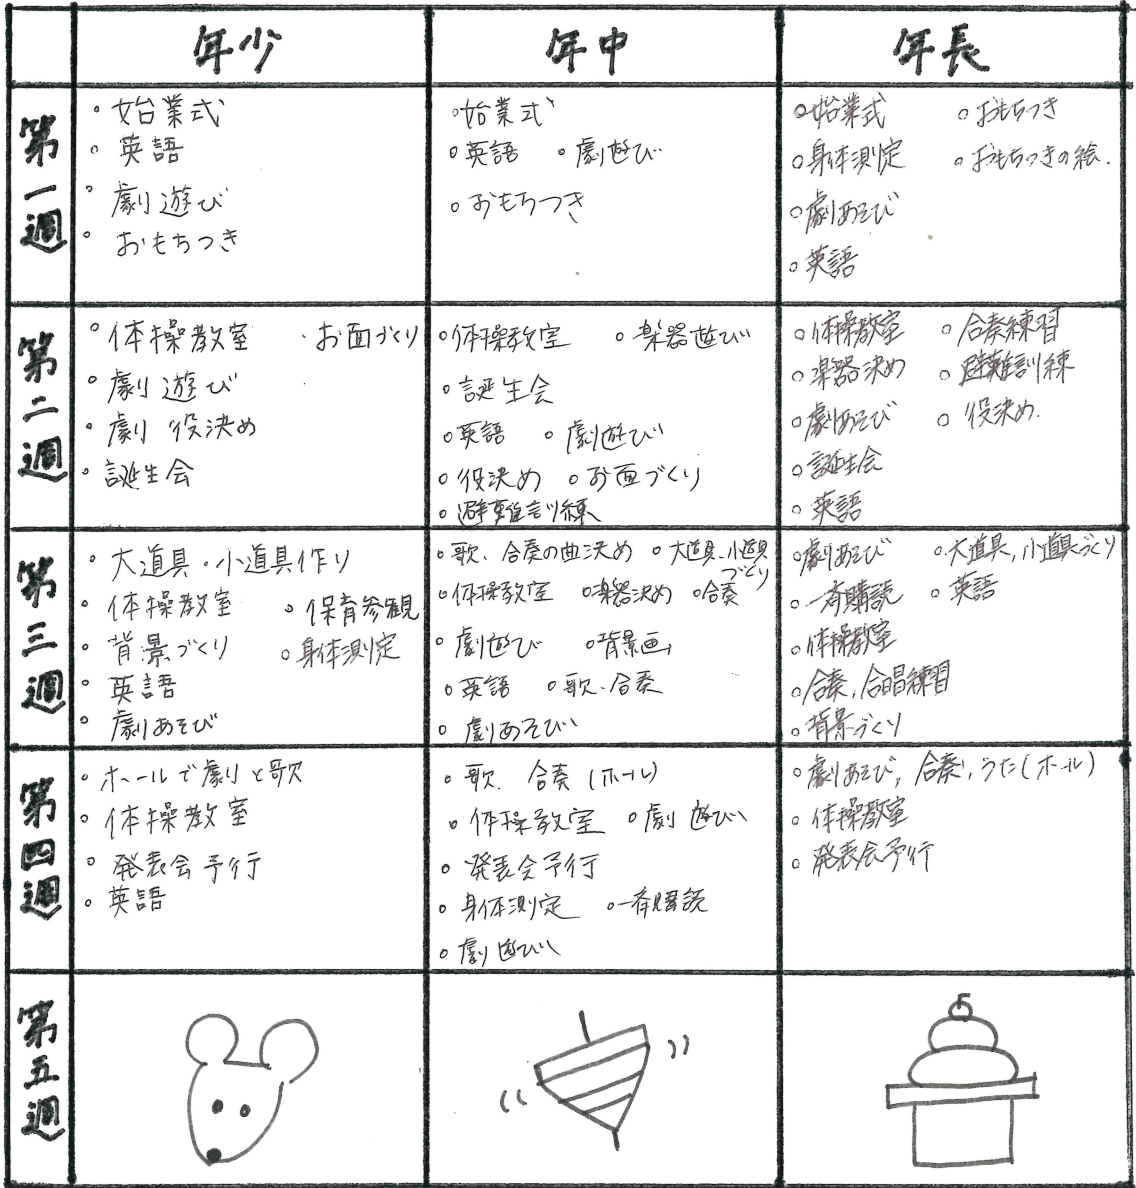 年少 年中 年長
第一週
・始業式
・英語
・劇遊び
・おもちつき
・始業式
・英語 ・劇遊び
・おもちつき
・始業式 ・おもちつき
・身体測定 ・おもちつきの絵.
・劇あそび
・英語
第二週
・体操教室 ・お面づくり
・劇遊び
・劇 役決め
・誕生会
・体操教室 ・楽器遊び
・誕生会
・英語 ・劇遊び
・役決め ・お面づくり
・避難訓練
・体操教室 ・合奏練習
・楽器決め ・避難訓練
・劇あそび ・役決め.
・誕生会
・英語
第三週
・大道具・小道具作り
・体操教室 ・保育参観
・背景づくり ・身体測定
・英語
・劇あそび
・歌、合奏の曲決め ・大道具、小道具づくり
・体操教室 ・楽器決め ・合奏
・劇遊び ・背景画
・英語 ・歌、合奏
・劇あそび
・劇あそび ・大道具,小道具づくり
・一斉購読 ・英語
・体操教室
・合奏,合唱練習
・背景づくり
第四週
・ホールで劇と歌
・体操教室
・発表会予行
・英語
・歌、合奏(ホール)
・体操教室 ・劇遊び
・発表会予行
・身体測定 ・一斉購読
・劇遊び
・劇あそび,合奏,うた(ホール)
・体操教室
・発表会予行
第五週